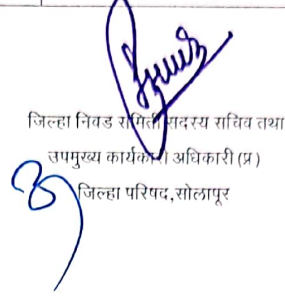 जिल्हा निवड समिती सदस्य सचिव तथा
उपमुख्य कार्यकारी अधिकारी (प्र)
जिल्हा परिषद,सोलापूर